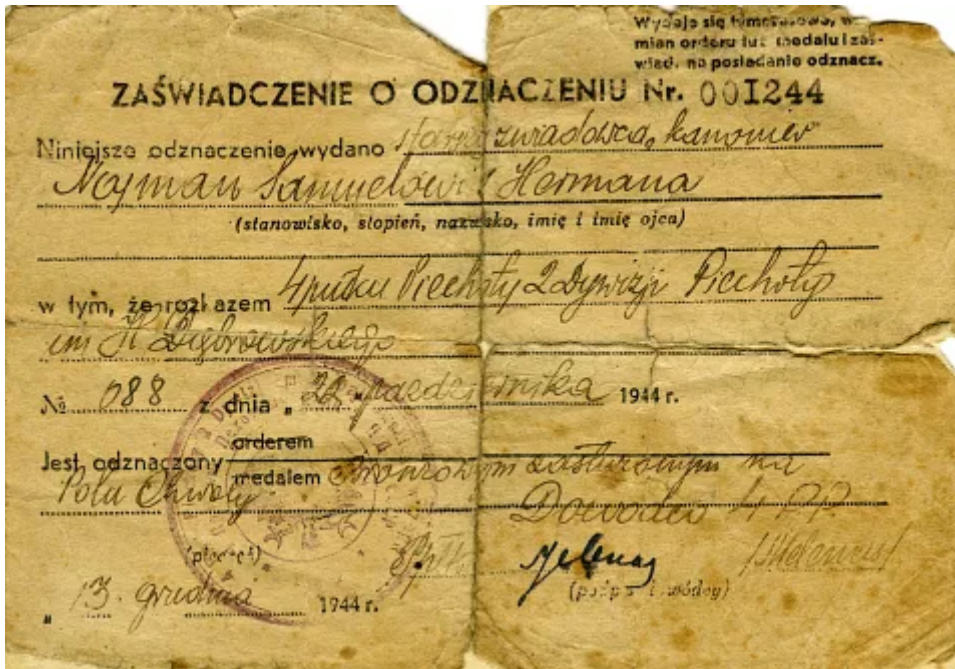 Wydaje się tymczasowo, w
mian orderu lub medalu i zaś-
wiad. na posiadanie odznacz.
ZAŚWIADCZENIE O ODZNACZENIU Nr. 001244
Niniejsze odznaczenie wydano zwiadowca, kanonier
Nojman Samuelowi s. Hermana
(stanowisko, stopień, nazwisko, imię i imię ojca)
w tym, że rozkazem 4 pułku Piechoty 2 Dywizji Piechoty
im H. Dąbrowskiego
№ 088 z dnia „ 22 " października 1944 r.
orderem
Jest odznaczony
medalem Bronzowym zasłużonym na
Polu Chwały
Dowódca 4 PP.
(pieczęć)
(podpis dowódcy)
„ 13. grudnia 1944 r.